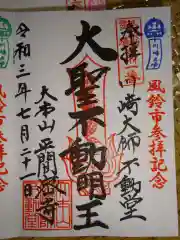 奉拝
川崎大師不動堂
大聖不動明王
令和三年七月二十一日
大本山平間寺
風鈴市参拝記念
風鈴市参拝記念